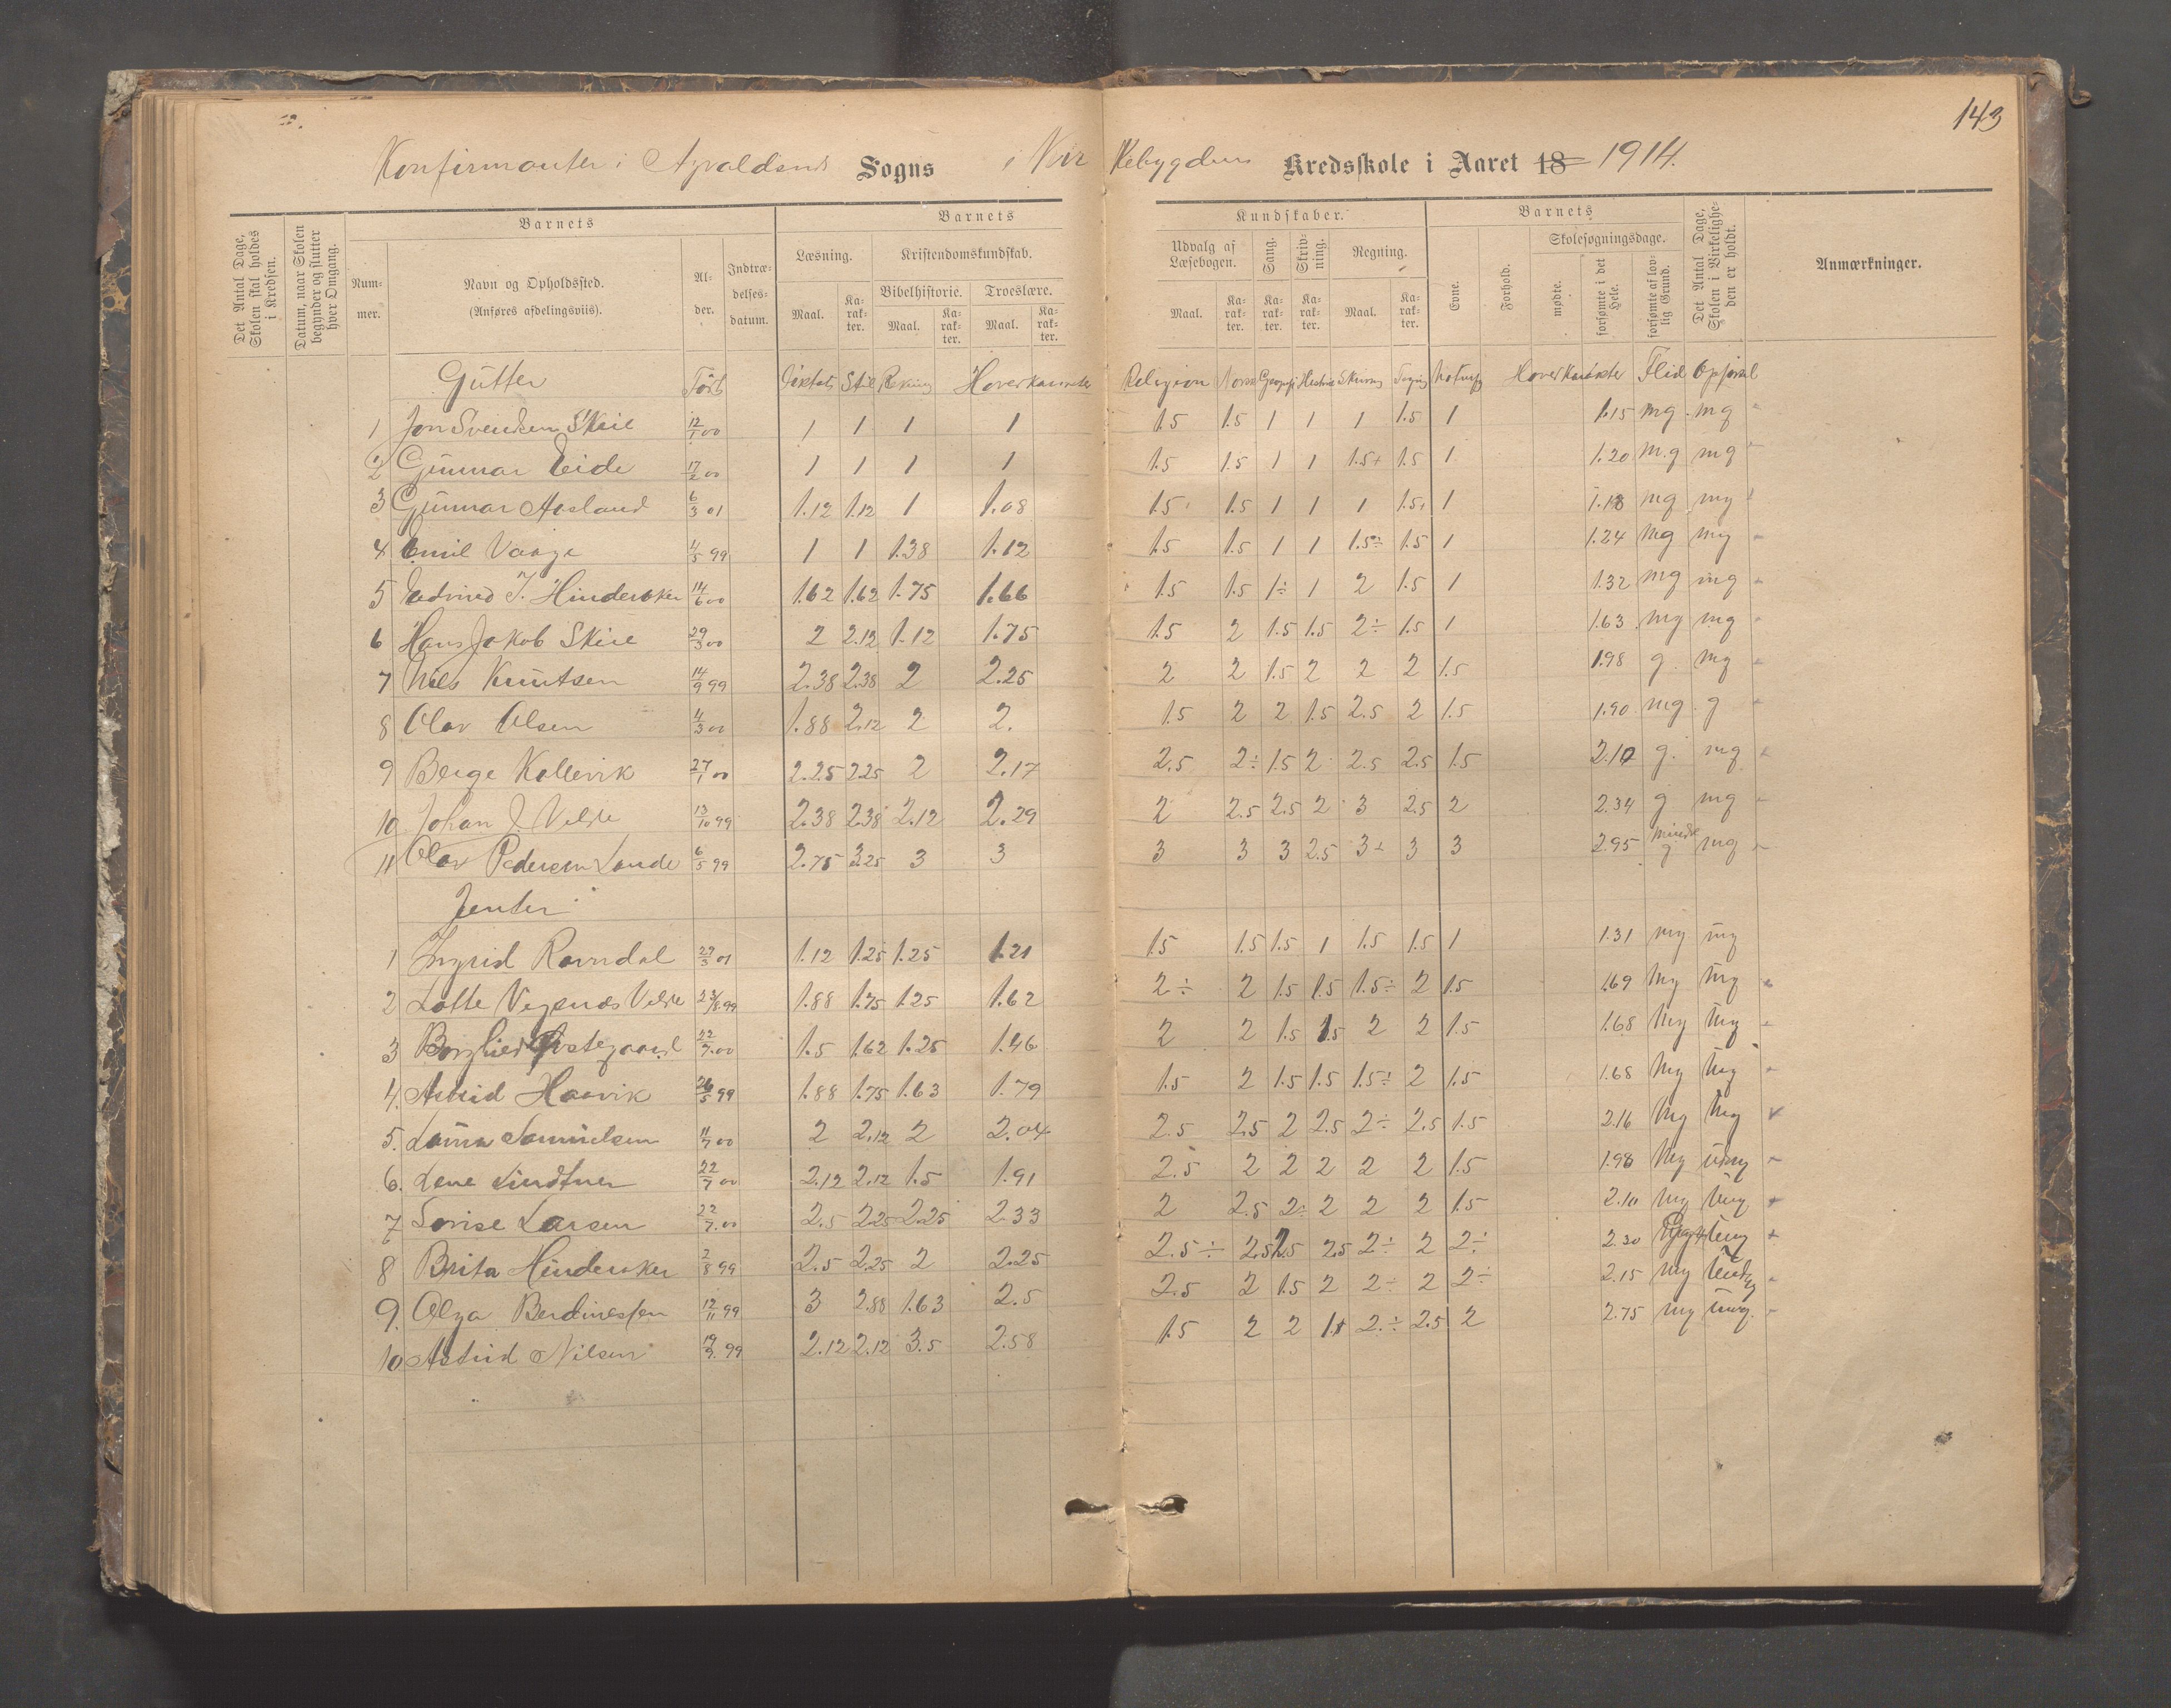 143
Konfirmanter i Avaldsnes Sogns i Nor Rebygdens Kredsskole i Aaret 18 1914.
Det Antal Dage, Skolen skal holdes i Kredsen.
Datum, naar Skolen begynder og slutter hver Omgang.
Barnets
Num-mer.
Navn og Opholdssted.
(Anføres afdelingsviis).
Al-der.
Indtræ-delses-datum.
Barnets
Læsning.
Maal.
Ka-rak-ter.
Kristendomskundskab.
Bibelhistorie.
Maal.
Ka-rak-ter.
Troeslære.
Maal.
Ka-rak-ter.
Kundskaber.
Udvalg af Læsebogen.
Maal.
Ka-rak-ter.
Sang.
Ka-rak-ter.
Skriv-ning.
Ka-rak-ter.
Regning.
Maal.
Ka-rak-ter.
Barnets
Evne.
Forhold.
Skolesøgningsdage.
mødte.
forsømte i det Hele.
forsømte af lov-lig Grund.
Det Antal Dage, Skolen i Virkelighe-den er holdt.
Anmærkninger.
Gutter Født Diktat Stil Rekning Hoverkarakter Religion Norsk Geografi Historie Skrivning Tegning Naturf Hoverkarakter Flid Opførsel
1 Jon Svendsen Skeie 12/1 00 1 1 1 1 1.5 1.5 1 1 1 1.5 1 1.15 mg mg
2 Gunnar Eide 17/2 00 1 1 1 1 1.5 1.5 1 1 1.5+ 1.5 1 1.20 m.g mg
3 Gunnar Aasland 6/3 01 1.12 1.12 1 1.08 1.5 1.5 1 1 1 1.5 1 1.18 mg mg
4 Emil Vaage 4/5 99 1 1 1.38 1.12 1.5 1.5 1 1 1.5÷ 1.5 1 1.24 mg mg
5 Edvind J. Hinderaker 14/6 00 1.62 1.62 1.75 1.66 1.5 1.5 1÷ 1 2 1.5 1 1.32 mg mg
6 Hans Jakob Skeie 29/3 00 2 2.12 1.12 1.75 1.5 2 1.5 1.5 2÷ 1.5 1 1.63 mg mg
7 Nils Knutsen 14/9 99 2.38 2.38 2 2.25 2 2 1.5 2 2 2 1.5 1.98 g. mg
8 Olav Olsen 4/3 00 1.88 2.12 2 2. 1.5 2 2 1.5 2.5 2 1.5 1.90 mg g
9 Berge Kallevik 27/1 00 2.25 2.25 2 2.17 2.5 2÷ 1.5 2 2.5 2.5 1.5 2.10 g. mg
10 Johan J. Velde 13/10 99 2.38 2.38 2.12 2.29 2 2.5 2.5 2 3 2.5 2 2.34 g mg
11 Olav Pedersen Lande 6/5 99 2.75 3.25 3 3 3 3 3 2.5 3÷ 3 3 2.95 mindre g mg
Jenter
1 Ingrid Ravndal 27/3 01 1.12 1.25 1.25 1.21 1.5 1.5 1.5 1 1.5 1.5 1 1.31 mg mg
2 Lotte Velde 23/8 99 1.88 1.75 1.25 1.62 2÷ 2 1.5 1.5 1.5÷ 2 1.5 1.69 mg mg
3 Borghild Østegaard 22/7 00 1.5 1.62 1.25 1.46 2 2 1.5 1.5 2 2 1.5 1.68 mg mg
4. Astrid Haavik 26/5 99 1.88 1.75 1.63 1.79 1.5 2 1.5 1.5 1.5÷ 2 1.5 1.68 mg mg
5. Laura Samuelsen 11/7 00 2 2.12 2 2.04 2.5 2.5 2 2.5 2÷ 2.5 1.5 2.16 mg mg
6. Lene Lindtner 22/7 00 2.12 2.12 1.5 1.91 2.5 2 2 2 2 2 1.5 1.98 mg mg
7 Lovise Larsen 22/7 00 2.5 2.25 2.25 2.33 2 2.5 2÷ 2 2 2 1.5 2.10 mg mg
8 Brita Hinderaker 2/8 99 2.5 2.25 2 2.25 2.5÷ 2.5 2.5 2.5 2÷ 2 2÷ 2.30 mg
9. Olga Berdinessen 12/11 99 3 2.88 1.63 2.5 2.5 2 1.5 2 2÷ 2 2÷ 2.15 mg
10 Astrid Nilsen 19/9 99 2.12 2.12 3.5 2.58 1.5 2 2 2÷ 2.5 2 2.75 mg mg